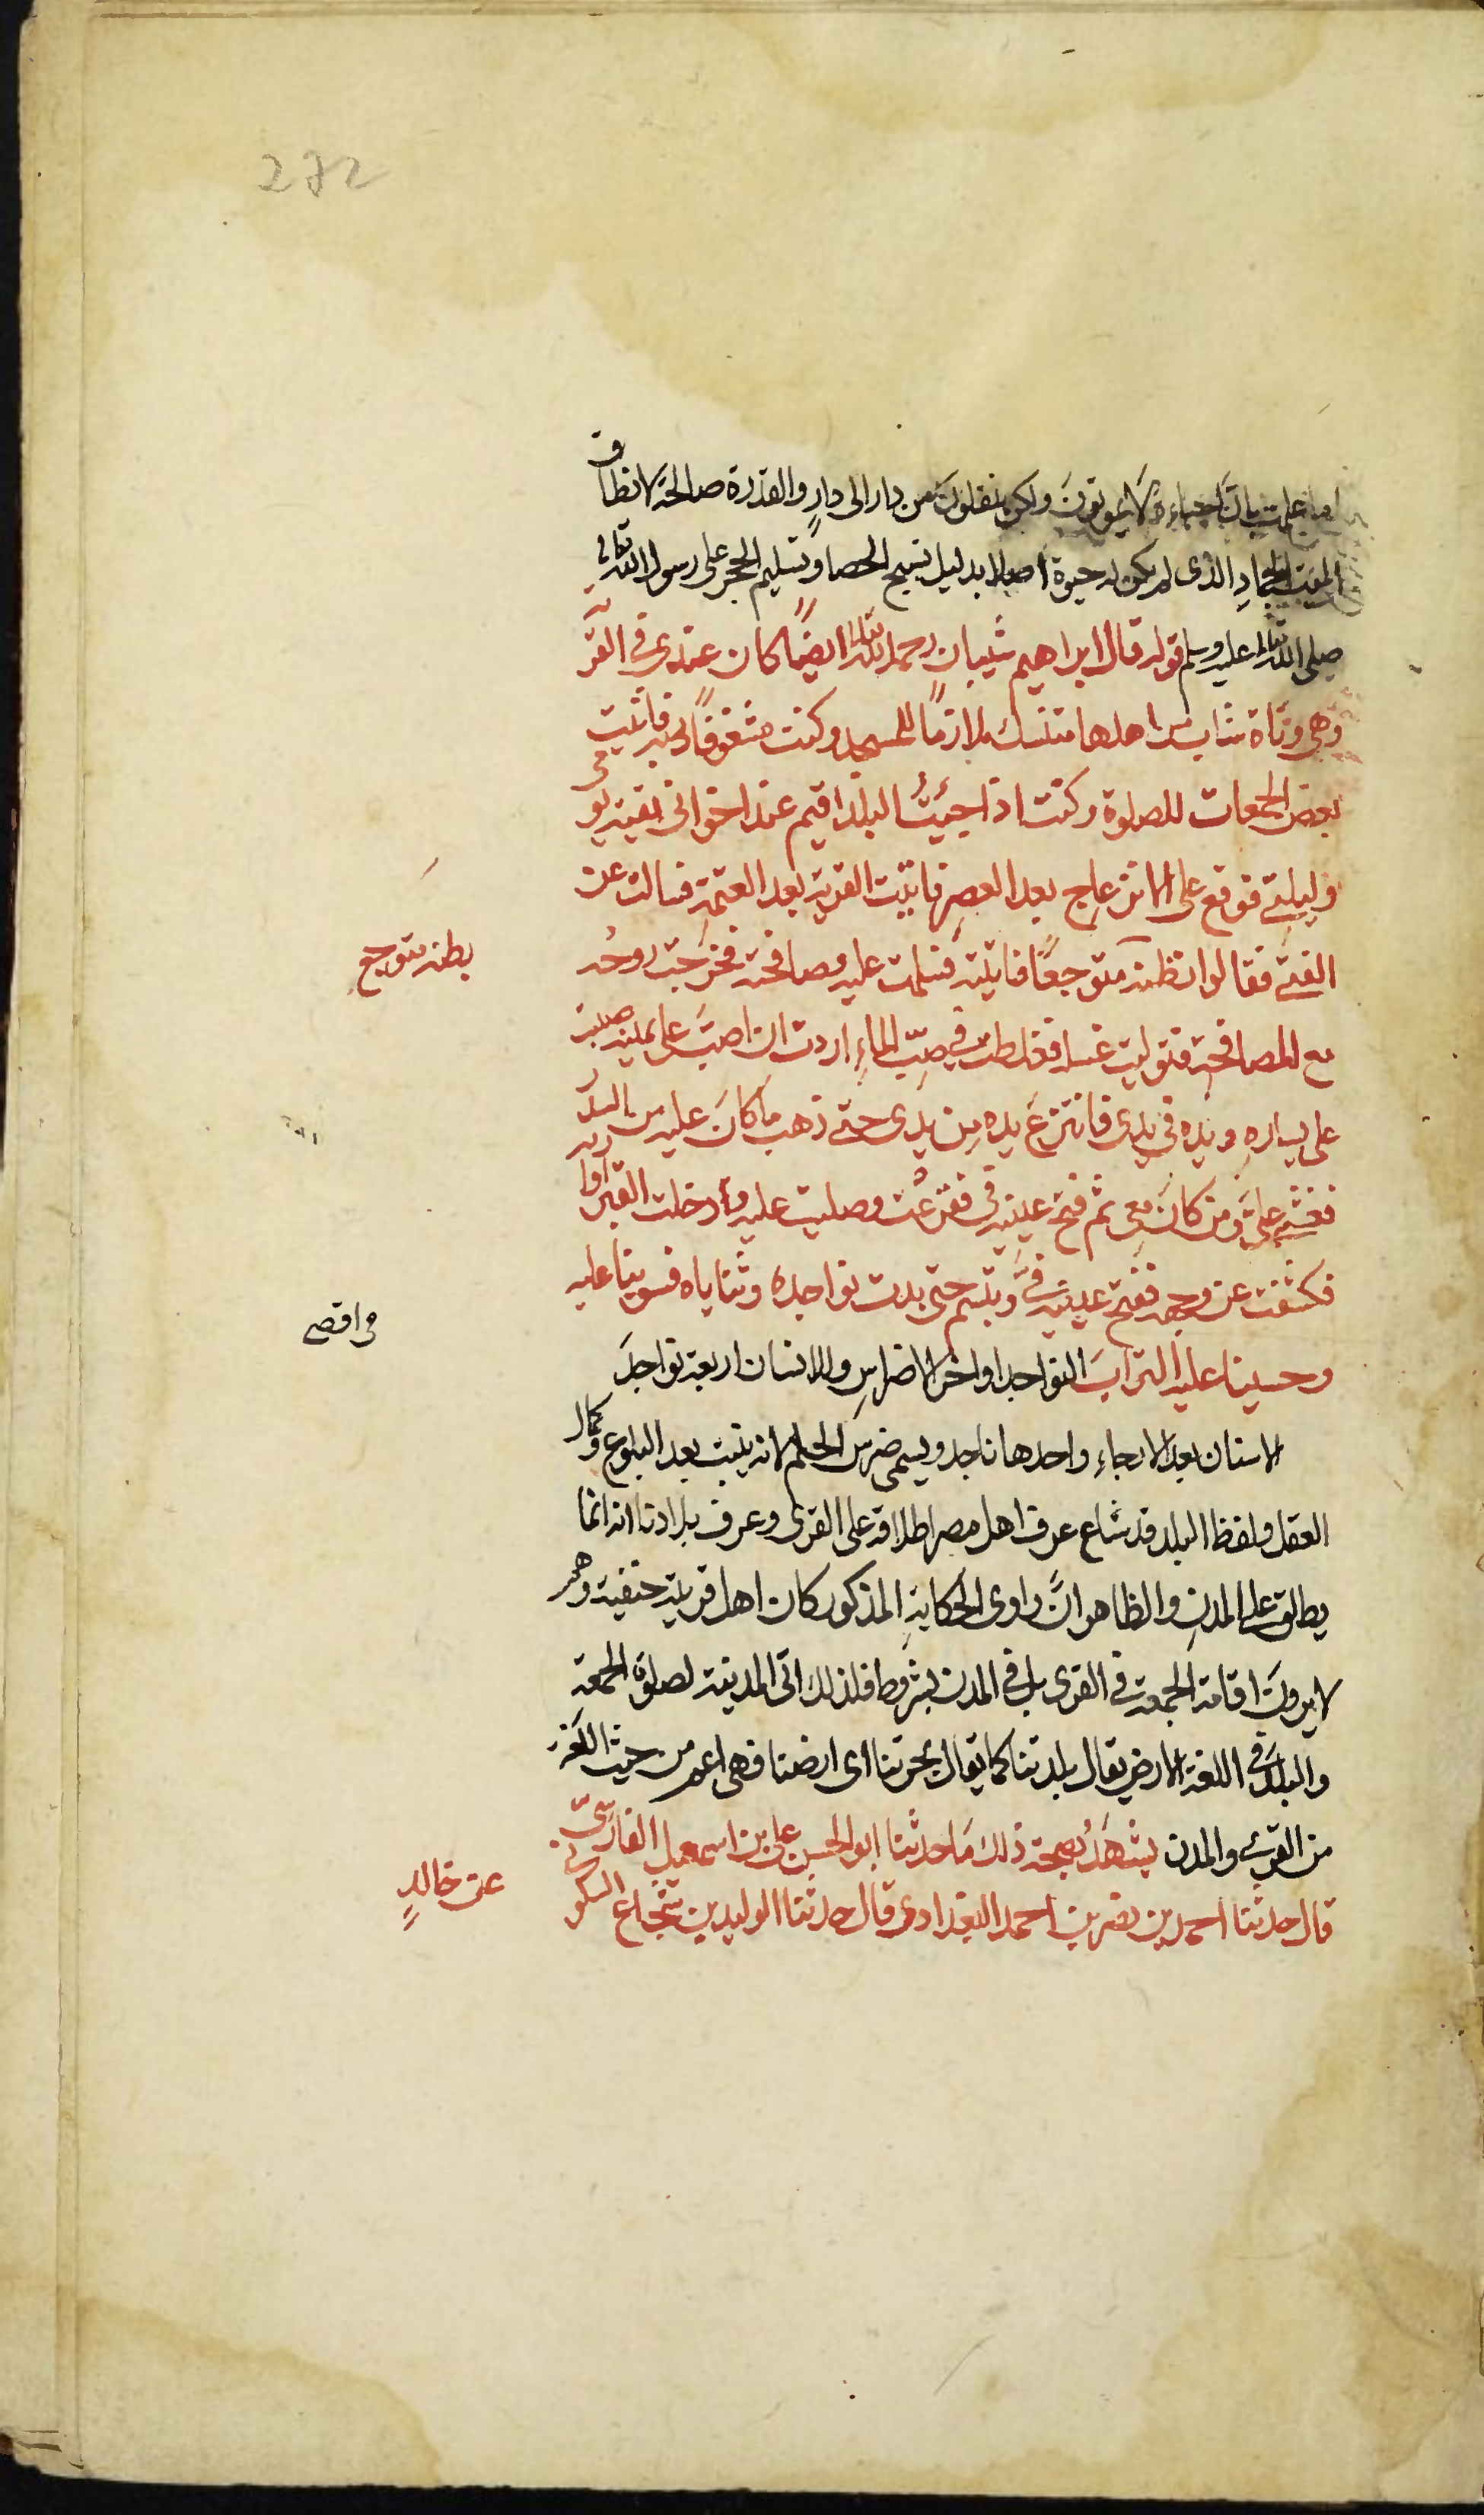 272
اما علمت بان احباءه لا يموتون ولكن ينقلون من دار الى دارٍ والقدرة صالحة لانطاق
الميت الجمادِ الذى لم يكن له حيوة اصلا بدليل تسبيح الحصا وتسليم الحجر على رسول الله تعالى
صلى الله تعالى عليه وسلم قوله قال ابراهيم شيبان رحمه الله تعالى ايضًا كان عندى فى القر
وهى وتاة شاب من اهلها متنسك ملازمًا للمسجد وكنت مشغوفًا به فاتيت
بعض الجمعات للصلوة وكنت اذا جيئتُ البلد اقيم عند اخوانى بقية يومى
وليلتى فوقع على الانزعاج بعد العصر فاتيت القرية بعد العتمة فسالت عن
الفتى فقالوا نظنه متوجعًا فاتيته فسلمت عليه وصافحته فخرجت روحه
مع المصافحة فتوليت غسله فغلطت فى صبّ الماءِ اردت ان اصبّ على يمينه صببت
على يساره ويده فى يدى فانتزع يده من يدى حتى ذهب ما كان عليه من السدر
فغشى علىّ ومن كان معى ثم فتح عينيه فىّ ففزعت وصليت عليه وادخلت القبر اواريه
فكشفت عن وجهه ففتح عينيه فىّ وتبسم حتى بدت نواجده وثناياه فسوينا عليه
وحسينا عليه التراب النواجد اواخر الاضراس وللانسان اربعة نواجد
الاسنان بعد الارحاء واحدها ناجد ويسمى ضرس الحلم لانه ينبت بعد البلوغ وكمال
العقل ولفظ البلد قد شاع عرف اهل مصر اطلاقه على القرى وعرف بلادنا انه انما
يطلق على المدنِ والظاهر انّ راوى الحكايةِ المذكور كان اهل قريته حنفية وهم
لا يرون اقامة الجمعة فى القرى بل فى المدن بشروط فلذلك اتى المدينة لصلوة الجمعة
والبلد فى اللغة الارض يقال بلدتنا كما يقال بحرتنا اى ارضنا فهى اعم من حيث اللغة
من القرى والمدن يشهَدُ بصحة ذلك ما حدثنا ابو الحسن على بن اسمعيل الفارسىّ
قال حدثنا احمد بن نصر بن احمد البغدادى قال حدثنا الوليد بن شجاع السكونى
بطنه متوجع
فى اقصى
عن خالدٍ